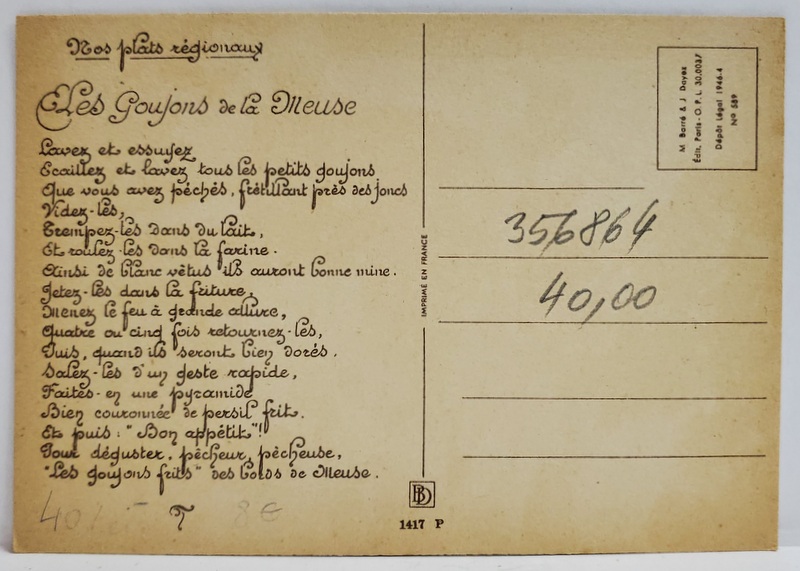 Nos plats régionaux
Les Goujons de la Meuse
Lavez et essuyez
Ecaillez et lavez tous les petits goujons
Que vous avez péchés, frétillant près des joncs
Videz-les,
Trempez-les dans du lait,
Et roulez-les dans la farine.
Ainsi de blanc vêtus ils auront bonne mine.
Jetez-les dans la friture,
Menez le feu à grande allure,
Quatre ou cinq fois retournez-les,
Puis, quand ils seront bien dorés.
Salez-les d'un geste rapide,
Faites-en une pyramide
Bien couronnée de persil frit.
Et puis : "Bon appétit"!
Pour déguster, pêcheur, pêcheuse,
"Les goujons frits" des bords de Meuse.
40
8€
IMPRIMÉ EN FRANCE
BD
1417 P
M. Barré & J. Dayez
Édit. Paris - O. P. L. 30.0037
Dépôt Légal 1946-4
No 589
356864
40,00